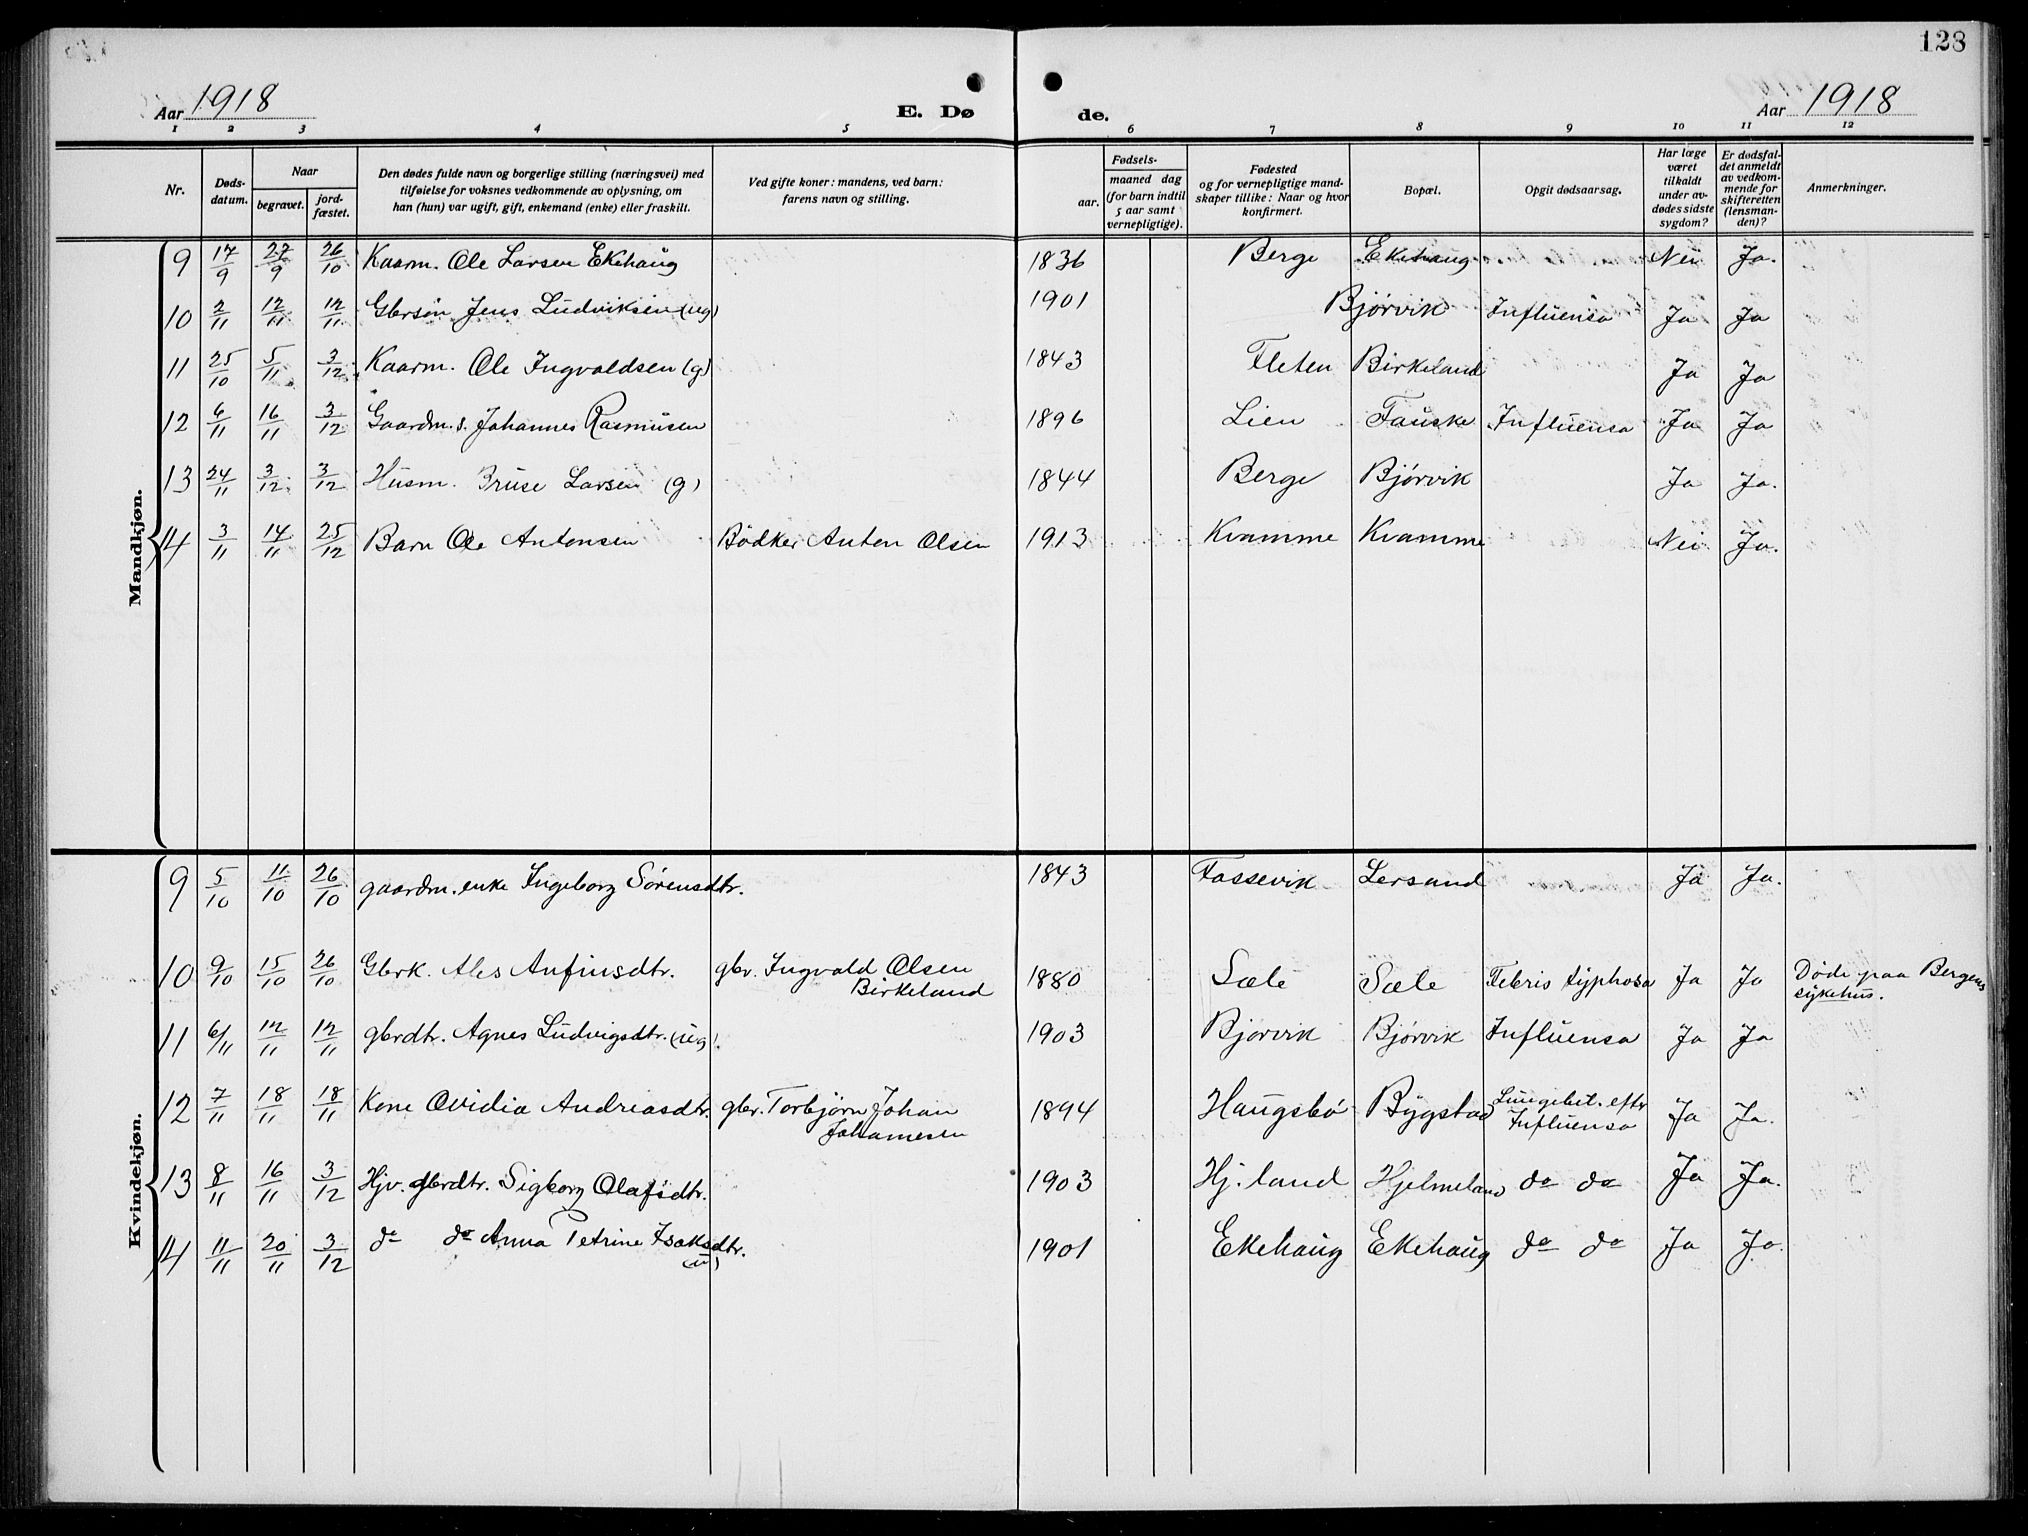 128
Aar 1918 E. Dø de. Aar 1918
1 2 3 4 5 6 7 8 9 10 11 12
Nr. Døds-datum. Naar begravet. jord-fæstet. Den dødes fulde navn og borgerlige stilling (næringsvei) med tilføielse for voksnes vedkommende av oplysning, om han (hun) var ugift, gift, enkemand (enke) eller fraskilt. Ved gifte koner: mandens, ved barn: farens navn og stilling. Fødsels- aar. maaned dag (for barn indtil 5 aar samt vernepligtige). Fødested og for vernepligtige mand-skaper tillike: Naar og hvor konfirmert. Bopæl. Opgit dødsaarsag. Har læge været tilkaldt under av-dødes sidste sygdom? Er dødsfal-det anmeldt av vedkom-mende for skifteretten (lensman-den)? Anmerkninger.
Mandkjøn.
9 17/9 27/9 26/10 Kaarm. Ole Larsen Ekehaug 1836 Berge Ekehaug Nei Ja.
10 2/11 12/11 12/11 Gbrsøn Jens Ludviksen (ug) 1901 Bjørvik Influensa Ja Ja
11 25/10 5/11 3/12 Kaarm. Ole Ingvaldsen (g) 1843 Fleten Birkeland Ja Ja
12 6/11 16/11 3/12 Gaardm. s. Johannes Rasmusen 1896 Lien Fauske Influensa Ja Ja
13 24/11 3/12 3/12 Husm. Bruse Larsen (g) 1844 Berge Bjørvik Ja Ja.
14 3/11 14/11 25/12 Barn Ole Antonsen Bødker Anton Olsen 1913 Kvamme Kvamme Nei Ja.
Kvindekjøn.
9 5/10 11/10 26/10 gaardm. enke Ingeborg Sørensdtr. 1843 Fossevik Lersund Ja Ja.
10 9/10 15/10 26/10 Gbrk. Ales Anfinsdtr. gbr. Ingvald Olsen Birkeland 1880 Sæle Sæle Febris typhosa Ja Ja Døde paa Bergens sykehus.
11 6/11 12/11 12/11 gbrdtr. Agnes Ludvigsdtr. (ug). 1903 Bjørvik Bjørvik Influensa Ja Ja
12 7/11 18/11 18/11 Kone Ovidia Andreasdtr. gbr. Torbjørn Johan Johannesen 1894 Haugsbø Bygstad Lungebet. eftr Influensa Ja Ja.
13 8/11 16/11 3/12 Hjv. gbrdtr. Sigborg Olafsdtr. 1903 Hj.land Hjelmeland do do Ja Ja.
14 11/11 20/11 3/12 do do Anna Petrine Isaksdtr. (u) 1901 Ekehaug Ekehaug do do Ja Ja.